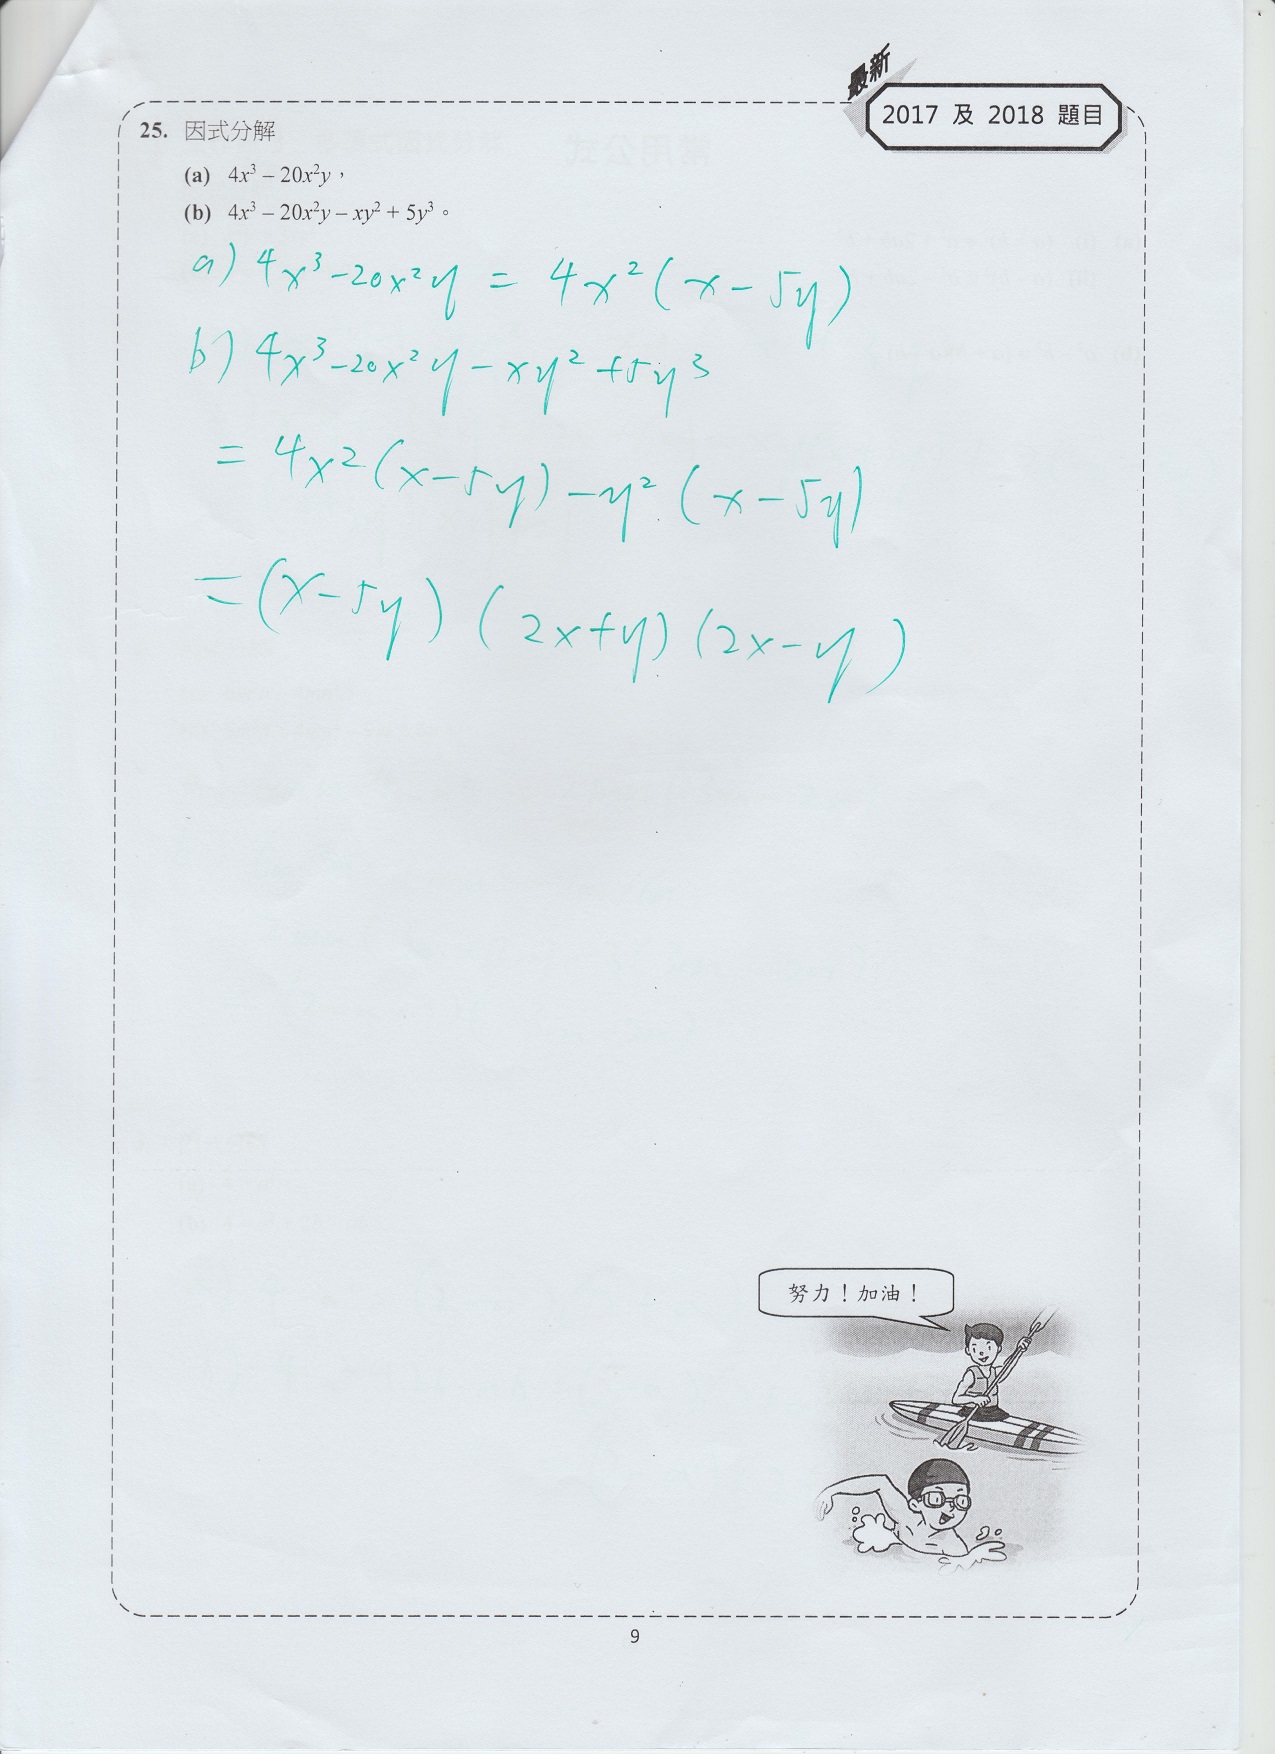 最新
2017 及 2018 題目
25. 因式分解
(a) 4x³ – 20x²y，
(b) 4x³ – 20x²y – xy² + 5y³。
a) 4x³ - 20x²y = 4x² (x - 5y)
b) 4x³ - 20x²y - xy² + 5y³
= 4x² (x - 5y) - y² (x - 5y)
= (x - 5y) (2x + y) (2x - y)
努力！加油！
9